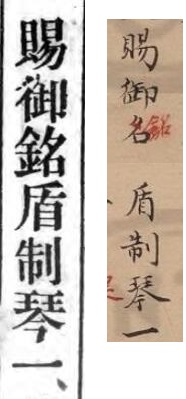 賜御銘盾制琴一、
賜御名銘盾制琴一